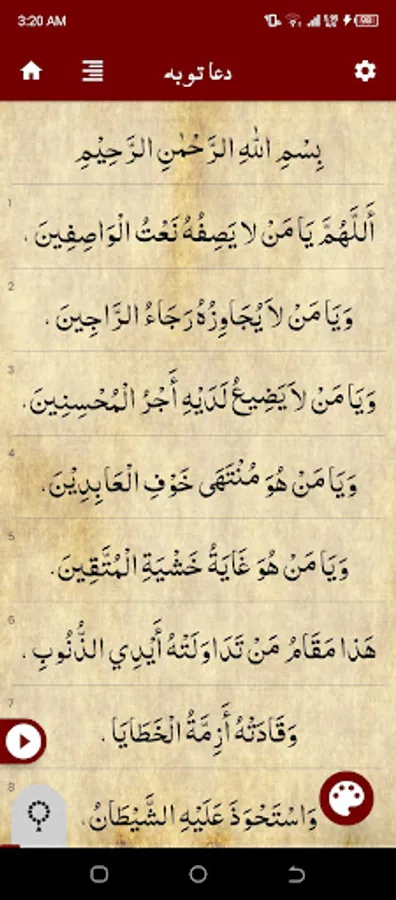 3:20 AM
دعا توبه
بِسْمِ اللهِ الرَّحْمٰنِ الرَّحِيْمِ
1
أَللَّهُمَّ يَا مَنْ لا يَصِفُهُ نَعْتُ الْوَاصِفِينَ .
2
وَيَا مَنْ لاَ يُجَاوِزُهُ رَجَاءُ الرَّاجِينَ .
3
وَيَا مَنْ لاَ يَضِيعُ لَدَيْهِ أَجْرُ الْمُحْسِنِينَ.
4
وَيَا مَنْ هُوَ مُنْتَهَى خَوْفِ الْعَابِدِيْنَ.
5
وَيَا مَنْ هُوَ غَايَةُ خَشْيَةِ الْمُتَّقِينَ.
6
هَذا مَقَامُ مَنْ تَدَاوَلَتْهُ أَيْدِي الذُّنُوبِ .
7
وَقَادَتْهُ أَزِمَّةُ الْخَطَايَا .
8
وَاسْتَحْوَذَ عَلَيْهِ الشَّيْطَانُ.